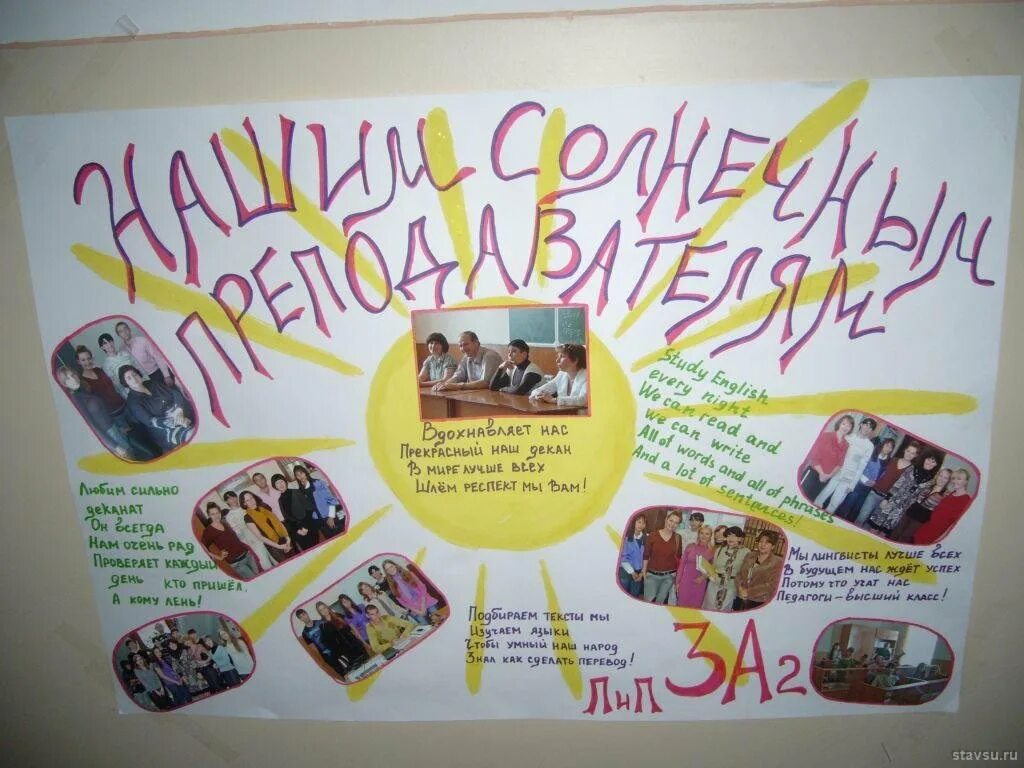 НАШИМ СОЛНЕЧНЫМ
ПРЕПОДАВАТЕЛЯМ
Вдохнавляет нас
Прекрасный наш декан
В мире лучше всех
Шлём респект мы Вам!
Study English
every night
We can read and
we can write
All of words and all of phrases
And a lot of sentences!
Любим сильно
деканат
Он всегда
Нам очень рад
Проверяет каждый
день кто пришёл,
А кому лень!
Подбираем тексты мы
Изучаем языки
Чтобы умный наш народ
Знал как сделать перевод!
Мы лингвисты лучше всех
В будущем нас ждёт успех
Потому что учат нас
Педагоги – высший класс!
ЛиП 3А2
stavsu.ru